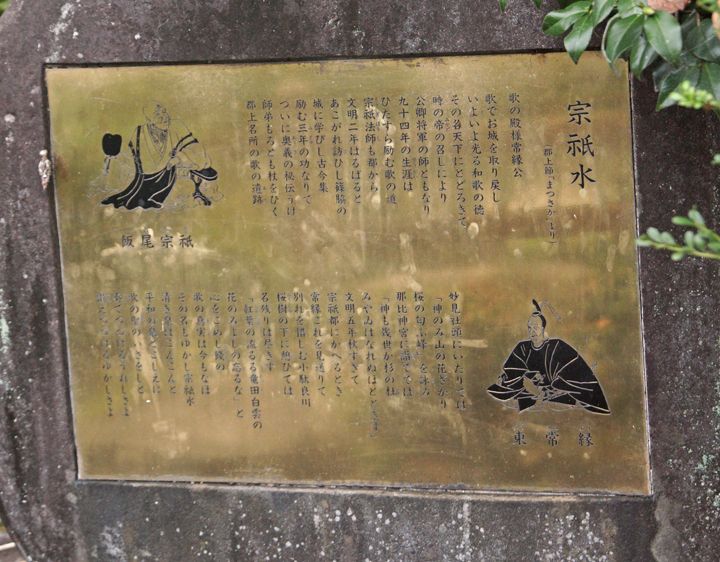 宗祇水
郡上節「まつさか」より
歌の殿様常縁公
歌でお城を取り戻し
いよいよ光る和歌の徳
その名天下にとどろきて
時の帝の召しにより
公卿将軍の師ともなり
九十四年の生涯は
ひたすら励む歌の道
宗祇法師も都から
文明二年はるばると
あこがれ訪ひし篠脇の
城に学びし古今集
励む三年の功なりて
ついに奥義の秘伝うけ
師弟もろとも杖をひく
郡上名所の歌の遺跡
飯尾宗祇
妙見社頭にいたりては
「神のみ山の花ざかり
桜の匂ふ峰」を詠み
那比神宮に詣でては
「神も幾世か杉の杜
みやは離れぬほととぎす」
文明五年秋すぎて
宗祇都にかへるとき
常縁これを見送りて
別れを惜しむ小駄良川
桜樹の下に憩ひては
名残りは尽きず
「紅葉の流るる竜田白雲の
花のみよしの忘るな」と
心をこめし餞の
歌の真実は今もなほ
その名もゆかし宗祇水
清き泉はこんこんと
平和の泉とこしへに
歌の聖のいさをしと
東常縁